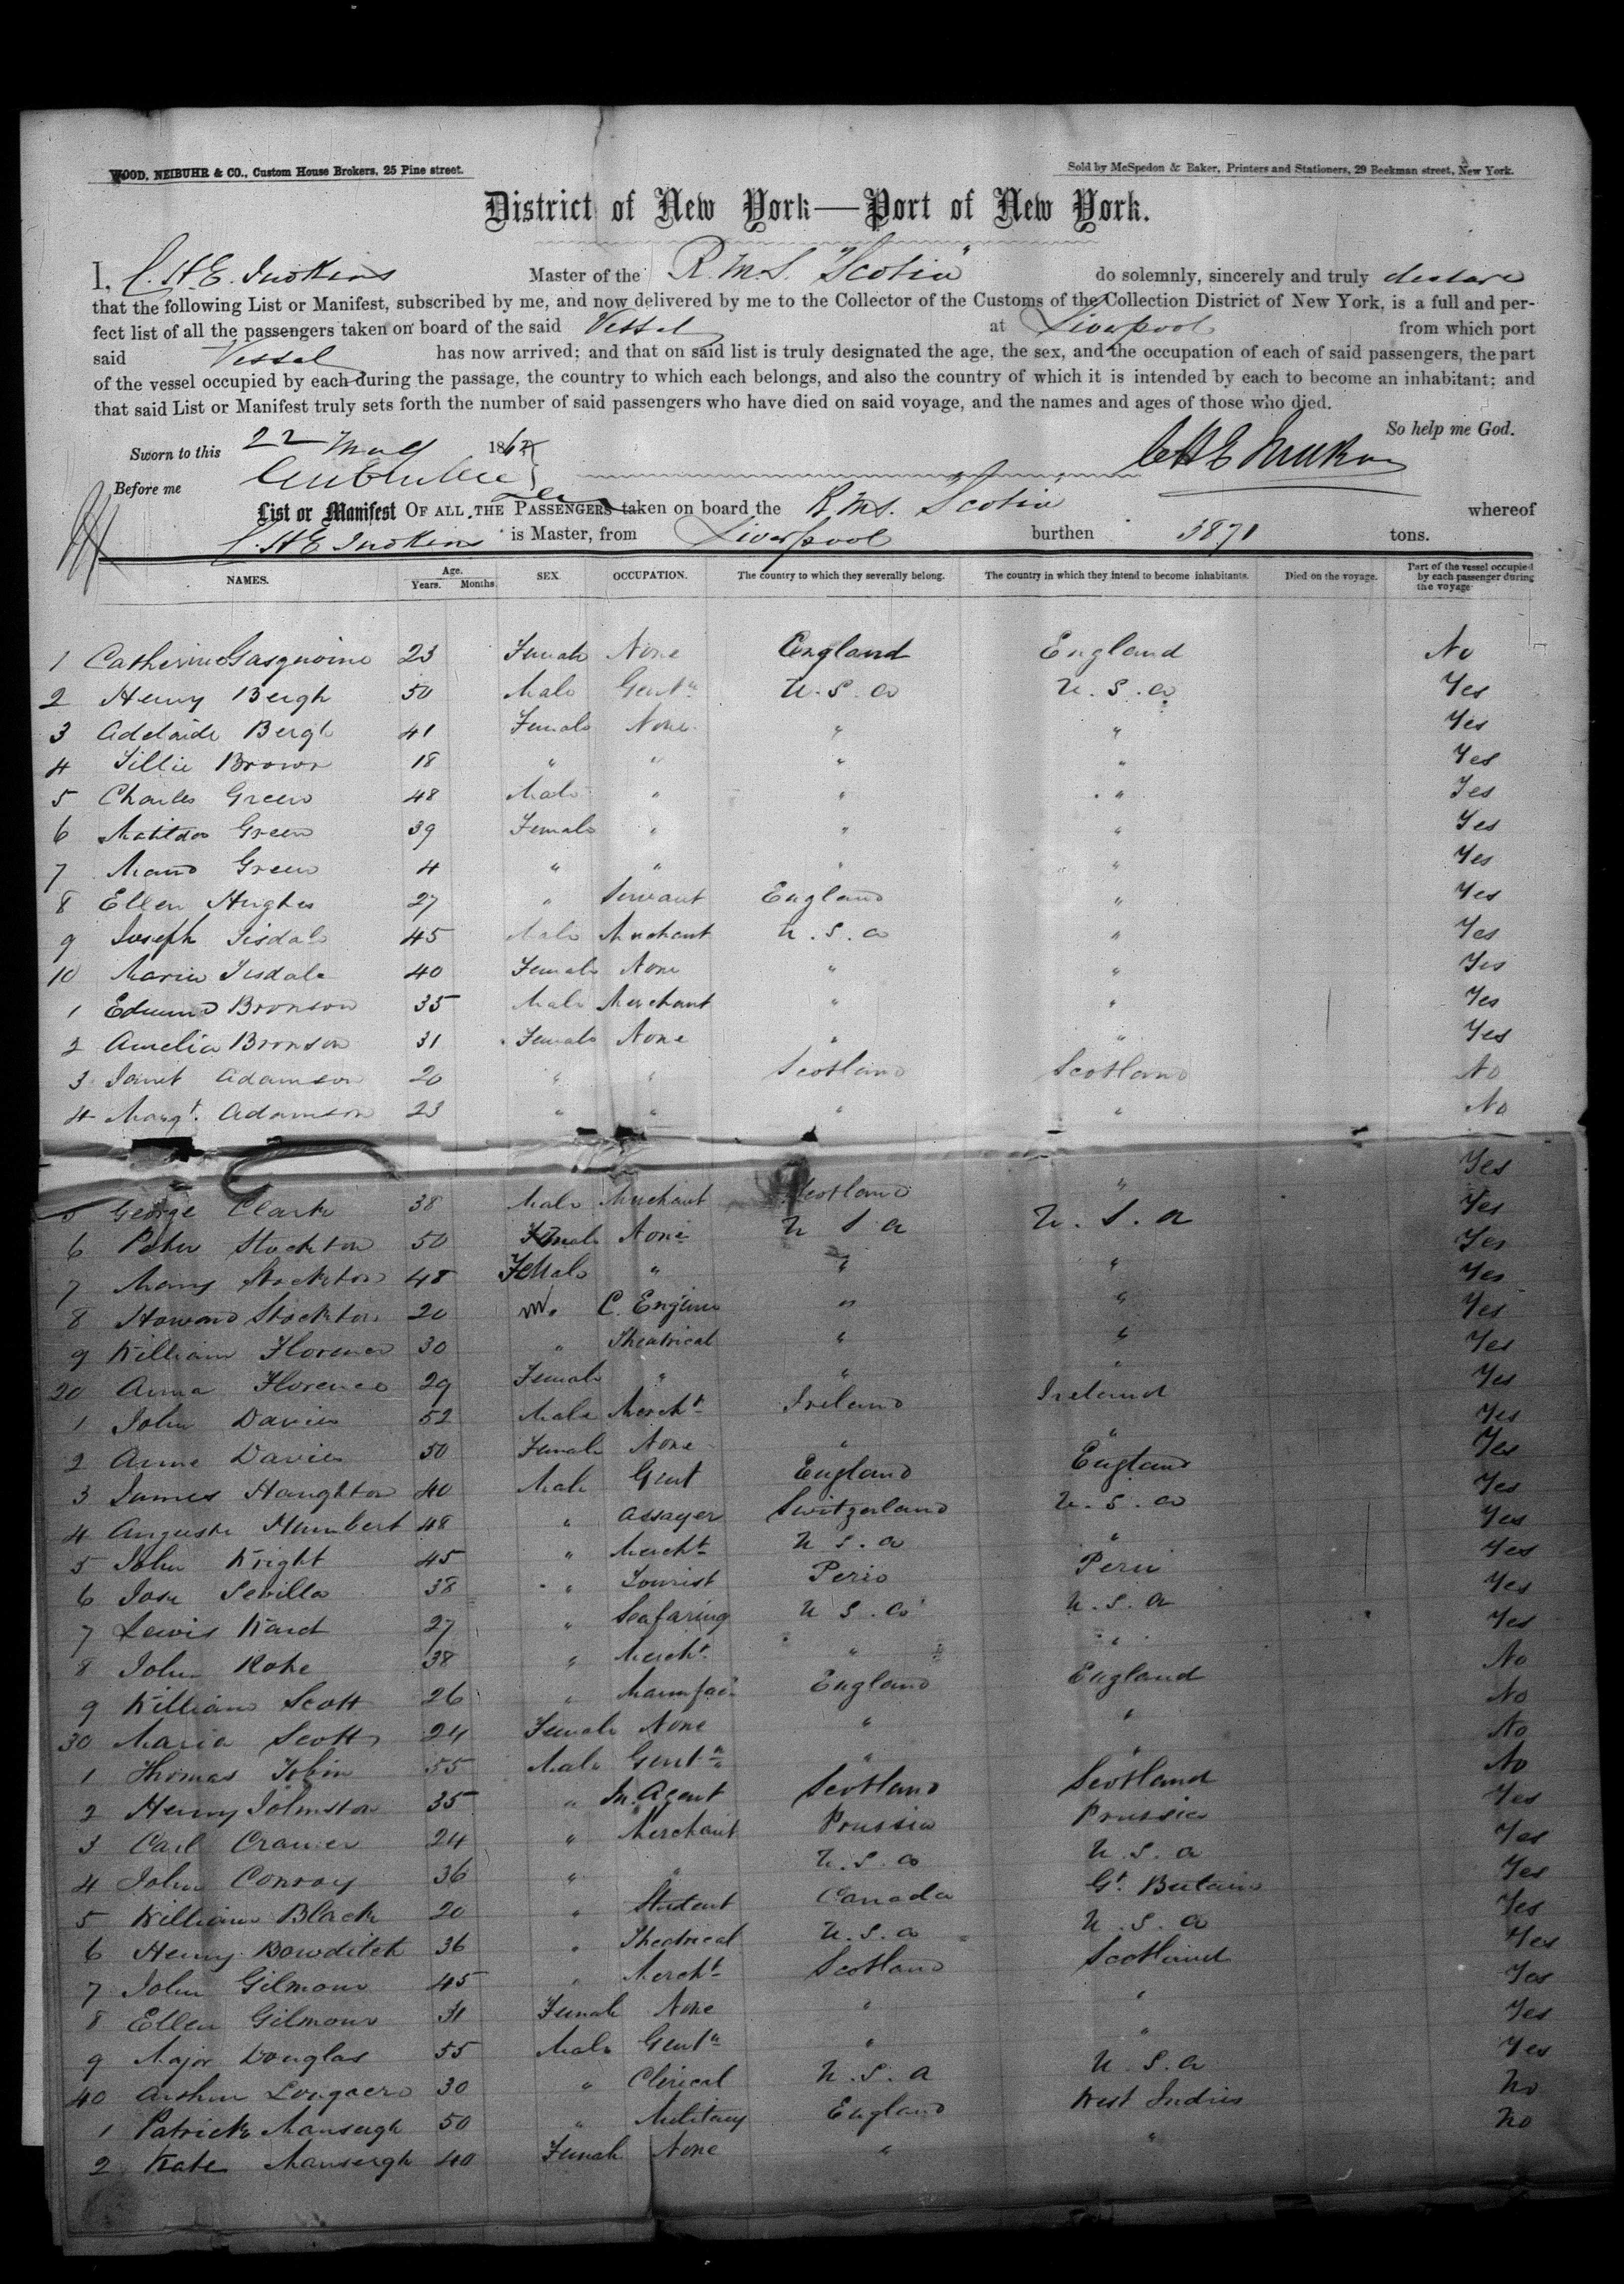 WOOD, NEIBUHR & CO., Custom House Brokers, 25 Pine street.
Sold by McSpedon & Baker, Printers and Stationers, 29 Beekman street, New York.
District of New York—Port of New York.
I, C.H.E. Judkins Master of the R.M.S. "Scotia" do solemnly, sincerely and truly declare
that the following List or Manifest, subscribed by me, and now delivered by me to the Collector of the Customs of the Collection District of New York, is a full and per-
fect list of all the passengers taken on board of the said Vessel at Liverpool from which port
said Vessel has now arrived; and that on said list is truly designated the age, the sex, and the occupation of each of said passengers, the part
of the vessel occupied by each during the passage, the country to which each belongs, and also the country of which it is intended by each to become an inhabitant; and
that said List or Manifest truly sets forth the number of said passengers who have died on said voyage, and the names and ages of those who died.
So help me God.
Sworn to this 22 May 1862
Before me
CHE Judkins
List or Manifest OF ALL THE PASSENGERS taken on board the R.M.S. Scotia whereof
C.H.E Judkins is Master, from Liverpool burthen 3871 tons.
NAMES. Age. Years. Months. SEX. OCCUPATION. The country to which they severally belong. The country in which they intend to become inhabitants. Died on the voyage. Part of the vessel occupied by each passenger during the voyage
1 Catherine Gasquoine 23 Female None England England No
2 Henry Bergh 50 Male Gentn U.S.a U.S.a Yes
3 Adelaide Bergh 41 Female None " " Yes
4 Tillie Brown 18 " " " " Yes
5 Charles Green 48 Male " " " Yes
6 Matilda Green 39 Female " " " Yes
7 Maud Green 4 " " " " Yes
8 Ellen Hughes 27 " Servant England " Yes
9 Joseph Tisdale 45 Male Merchant U.S.a " Yes
10 Maria Tisdale 40 Female None " " Yes
1 Edmund Bronson 35 Male Merchant " " Yes
2 Amelia Bronson 31 Female None " " Yes
3 Janet Adamson 20 " " Scotland Scotland No
4 Margt. Adamson 23 " " " " No
5 George Clark 38 Male Merchant Scotland " Yes
6 Peter Stockton 50 None U S a U.S.a Yes
7 Mary Stockton 48 Female " " " Yes
8 Howard Stockton 20 M. C. Engine " " Yes
9 William Florence 30 " Theatrical " " Yes
20 Anna Florence 29 Female " " " Yes
1 John Davies 52 Male Mercht Ireland Ireland Yes
2 Anne Davies 50 Female None " " Yes
3 James Haughton 40 Male Gent England England Yes
4 Auguste Humbert 48 " Assayer Switzerland U.S.a Yes
5 John Wright 45 " Mercht U.S.a " Yes
6 Jose Sevilla 38 " Tourist Perio Peru Yes
7 Lewis Ward 27 " Seafaring U.S.a U.S.a Yes
8 John Hoke 38 " Mercht " " Yes
9 William Scott 26 " England England No
30 Maria Scott 24 Female None " " No
1 Thomas Tobin 55 Male Gentn " " No
2 Henry Johnston 35 " In. Agent Scotland Scotland No
3 Carl Cramer 24 " Merchant Prussia Prussia Yes
4 John Conroy 36 " " U.S.a U.S.a Yes
5 William Black 20 " Student Canada Gt. Britain Yes
6 Henry Bowditch 36 " Theatrical U.S.a U.S.a Yes
7 John Gilmour 45 " Mercht Scotland Scotland Yes
8 Ellen Gilmour 31 Female None " " Yes
9 Major Douglas 55 Male Gentn " " Yes
40 Arthur Longacre 30 " Clerical U.S.a U.S.a Yes
1 Patrick Mansergh 50 " Military England West Indies No
2 Kate Mansergh 40 Female None " " No